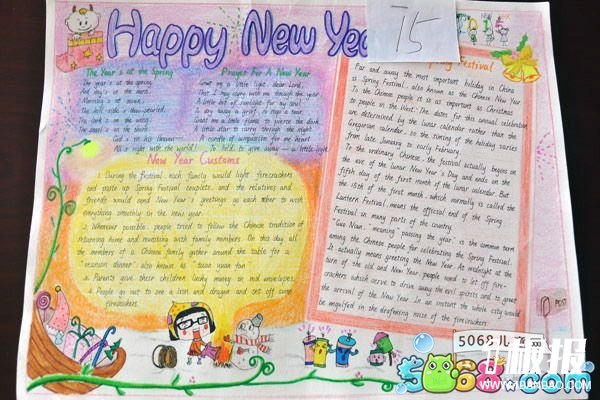 Happy New Yea
15
The Year's at the Spring
The year's at the spring
And day's at the morn.
Morning's at seven.
The hill-side's dew-pearled.
The lark's on the wing.
The snail's on the thorn.
God's in his Heaven—
All's right with the world!
Prayer For A New Year
Grant me a little light, dear Lord,
That I may carry with me through the year
A little bit of sunlight for my soul
To dry away a grief, to stop a tear.
Grant me a little flame to pierce the dark
A little star to carry through the night
A candle of compassion for my heart
To hold, to give away — a little light.
New Year Customs
1. During the festival, each family would light firecrackers
and paste up Spring Festival couplets, and the relatives and
friends would send New Year's greetings to each other to wish
everything smoothly in the new year.
2. Whenever possible, people tried to follow the Chinese tradition of
returning home and reuniting with family members. On this day all
the members of a Chinese family gather around the table for a
"reunion dinner" also known as "tuan yuan fan"
3. Parents give their children lucky money in red envelopes.
4. People go out to see a lion and dragon and set off some
firecrackers.
Spring Festival
Far and away the most important holiday in China
is Spring Festival, also known as the Chinese New Year
To the Chinese people it is as important as Christmas
to people in the West. The dates for this annual celebration
are determined by the lunar calendar rather than the
Gregorian calendar, so the timing of the holiday varies
from late January to early February.
To the ordinary Chinese, the festival actually begins on
the eve of the lunar New Year's Day and ends on the
fifth day of the first month of the lunar calendar. But
the 15th of the first month, which normally is called the
Lantern Festival, means the official end of the Spring
Festival in many parts of the country.
"Guo Nian," meaning "passing the year," is the common term
among the Chinese people for celebrating the Spring Festival.
It actually means greeting the New Year. At midnight at the
turn of the old and New Year, people used to let off fire-
crackers which serve to drive away the evil spirits and to greet
the arrival of the New Year. In an instant the whole city would
be engulfed in the deafening noise of the firecrackers.
POST
5068儿
板报
5068.com
WWW.WBANBAO.COM